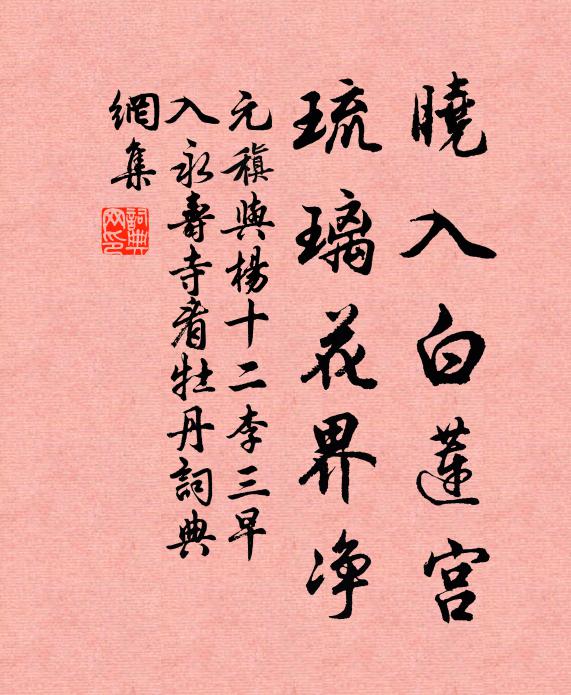 曉入白蓮宮
琉璃花界净
元稹與楊十二李三早
入永壽寺看牡丹詞典
網集
詞典
网印